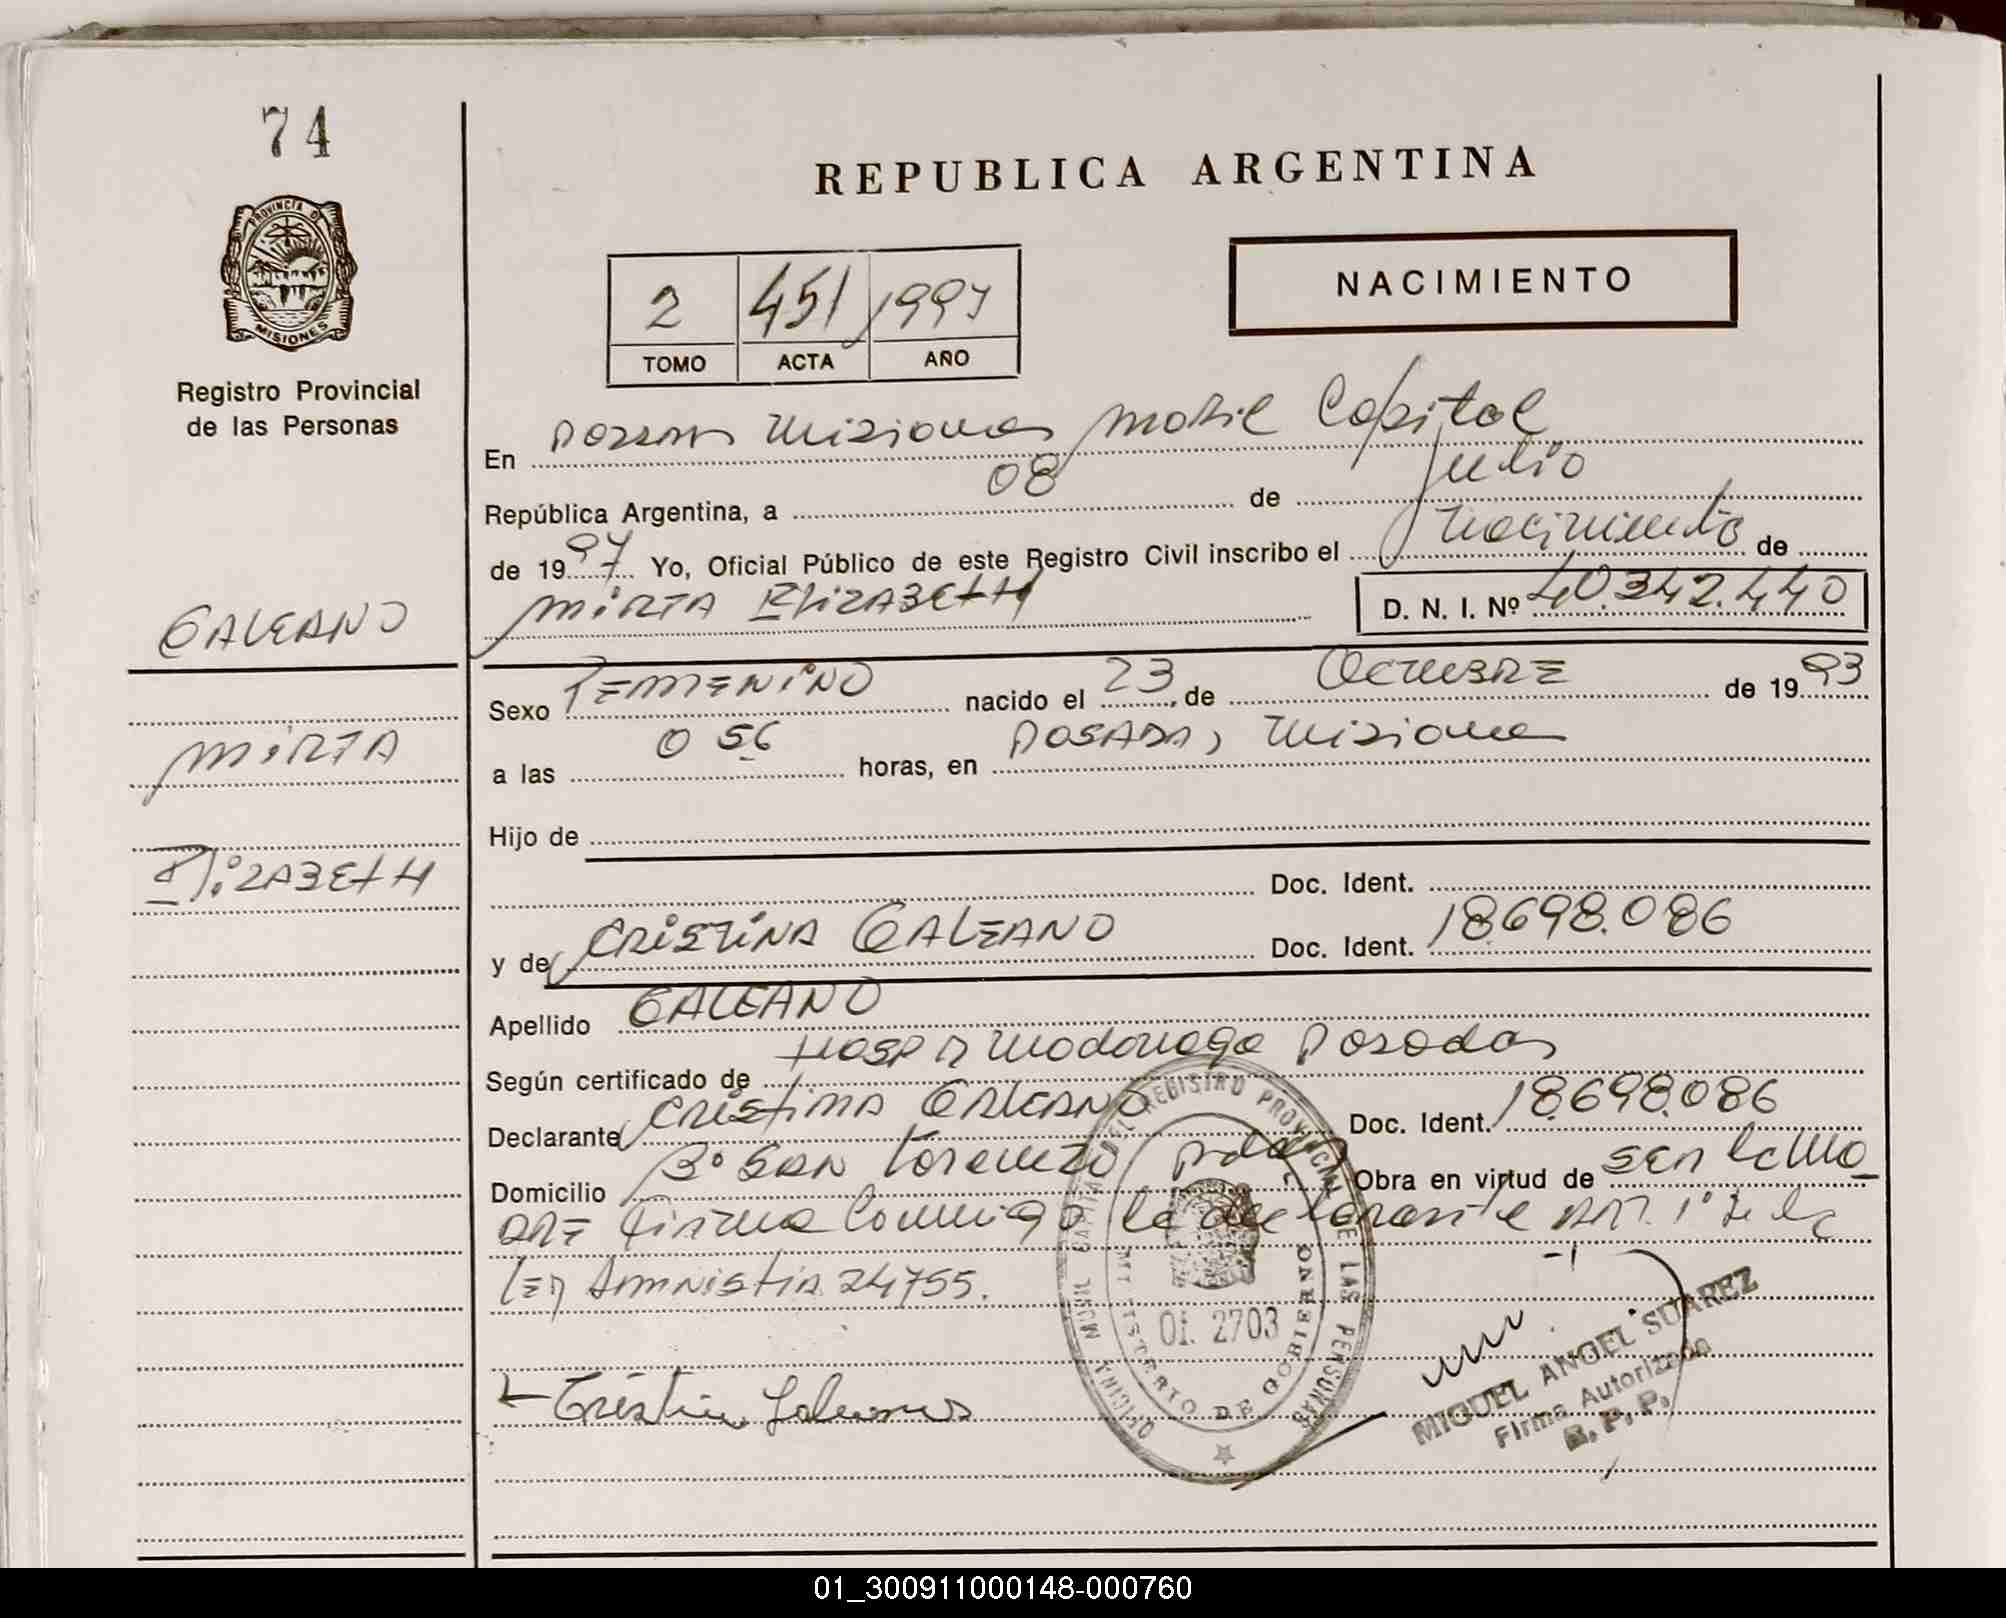 74
PROVINCIA DE
MISIONES
Registro Provincial
de las Personas
REPUBLICA ARGENTINA
2 451 1997
TOMO ACTA AÑO
NACIMIENTO
En Posadas Misiones Mobil Capital
República Argentina, a 08 de Julio
de 1997 Yo, Oficial Público de este Registro Civil inscribo el Nacimiento de
MIRTA ELIZABETH D. N. I. Nº 40.342.440
GALEANO
Sexo FEMENINO nacido el 23 de OCTUBRE de 1993
MIRTA
a las 0 56 horas, en POSADAS, Misiones
Hijo de
ELIZABETH
Doc. Ident.
y de CRISTINA GALEANO Doc. Ident. 18.698.086
Apellido GALEANO
Según certificado de HOSP R Madariaga Posadas
Declarante CRISTINA GALEANO Doc. Ident. 18.698.086
Domicilio Bº SAN Lorenzo Pdas Obra en virtud de
firma Conmigo la declarante ART. 1º de la
LEY AMNISTIA 24755.
Cristina Galeano
OFICINA MOVIL CAPITAL DEL REGISTRO PROVINCIAL DE LAS PERSONAS
MINISTERIO DE GOBIERNO
Of. 2703
MIGUEL ANGEL SUAREZ
Firma Autorizada
R. P. P.
01_300911000148-000760